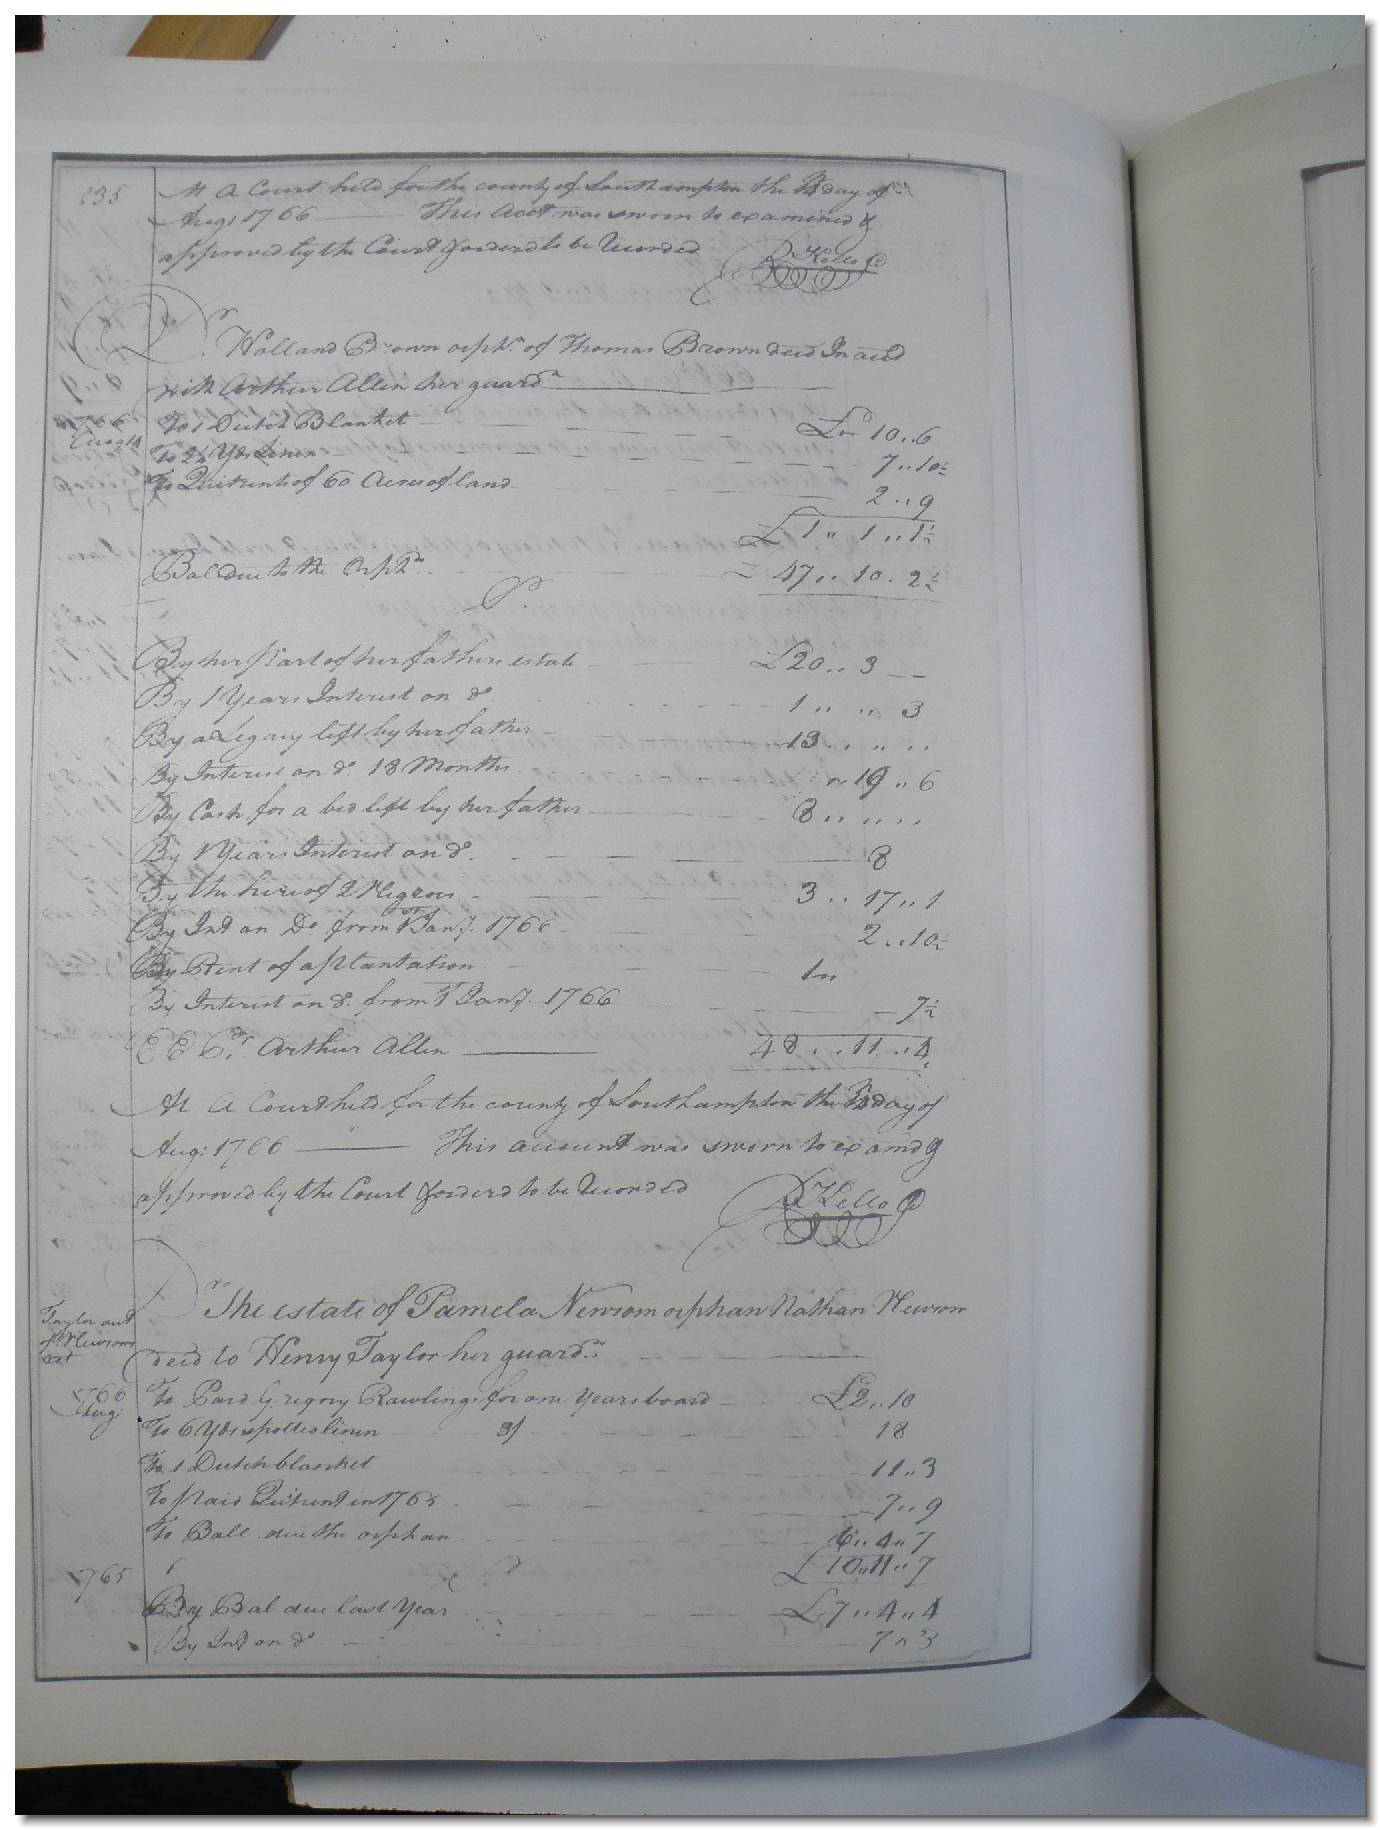 135
At A Court held for the county of Southampton the 14 day of
Aug: 1766 This Acct was sworn to examined &
approved by the Court & orderd to be Recorded
R Kello C
Dr. Holland Brown orphn of Thomas Brown decd In acct
with Arthur Allen her guardn
1766 To 1 Dutch Blanket £ 10..6
Aug 14 To 2½ Yds Linen 7..10½
To Quitrents of 60 Acres of land 2..9
£ 1 " 1 " 1½
Bal due to the Orphn 47..10.2½
By her part of her fathers estate £20..3 --
By 1 Years Interest on do 1 " " 3
By a Legacy left by her father 13 .. " ..
By Interest on do 18 Months " 19 " 6
By Cash for a bed left by her father 8 .. .. ..
By 1 Years Interest on do. 8
By the hire of 2 Negroes 3 .. 17 " 1
By Int on Do from 1 Jany. 1766 2..10½
By Rent of a plantation 1 "
By Interest on do. from 1 Jany. 1766 7½
E E Cr. Arthur Allen 48..11..4
At A Court held for the county of Southampton the 14 day of
Aug: 1766 This account was sworn to examd &
approved by the Court & orderd to be Recorded
R Kello C
Dr The estate of Pamela Newsom orphan Nathan Newsom
Taylor acct
of Newsoms
est
decd to Henry Taylor her guardn
1766 To Paid Gregory Rawlings for one Years board £2..10
Aug To 6 Yds spotted linen 3/ 18
To 1 Dutch blanket 11..3
To paid Quitrent in 1765 7..9
To Ball. due the orphan 6..4..7
£ 10 " 11 " 7
1765
By Bal due last Year £7..4..4
By Int on do 7 " 3